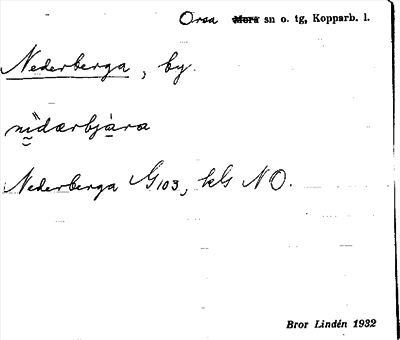 Orsa Mora sn o. tg, Kopparb. l.
Nederberga, by.
nìdærbjàra
Nederberga G103, kls NO.
Bror Lindén 1932